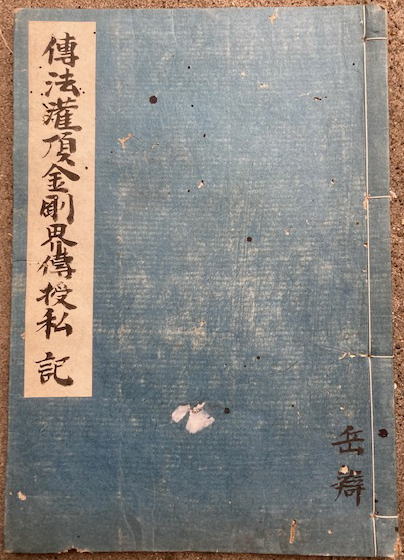 傳法灌頂金剛界傳授私記
岳